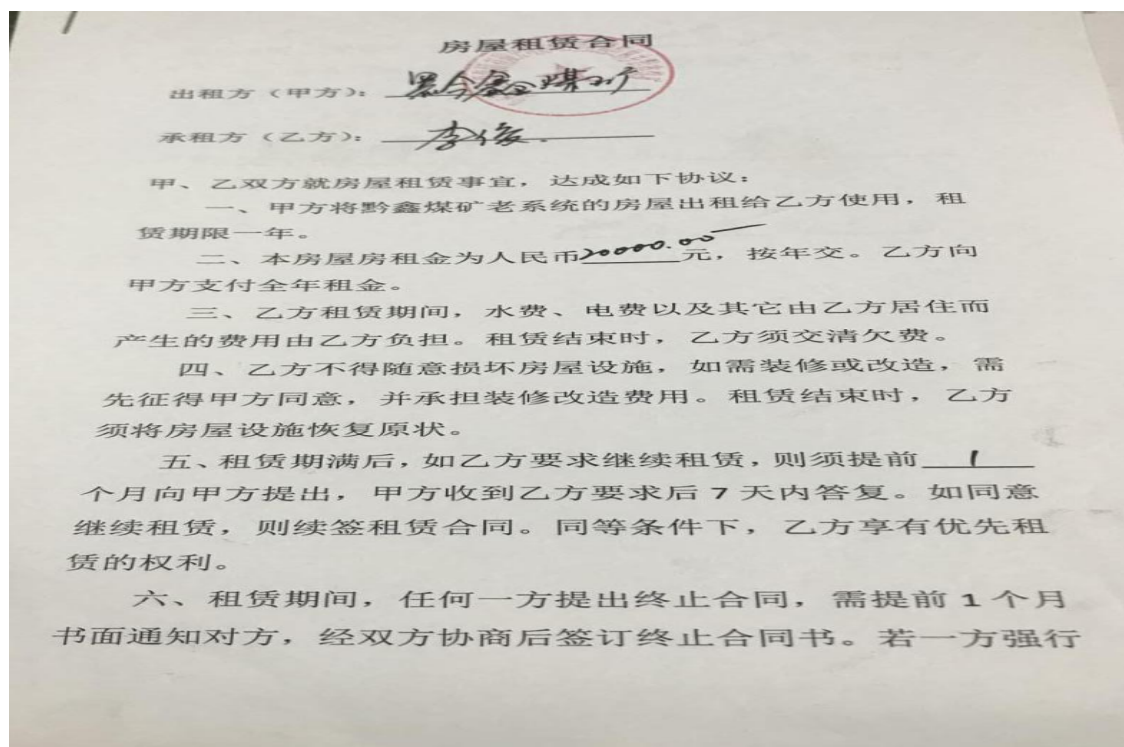 房屋租赁合同
出租方（甲方）：黔鑫煤矿
承租方（乙方）：李俊
甲、乙双方就房屋租赁事宜，达成如下协议：
一、甲方将黔鑫煤矿老系统的房屋出租给乙方使用，租
赁期限一年。
二、本房屋房租金为人民币20000.00元，按年交。乙方向
甲方支付全年租金。
三、乙方租赁期间，水费、电费以及其它由乙方居住而
产生的费用由乙方负担。租赁结束时，乙方须交清欠费。
四、乙方不得随意损坏房屋设施，如需装修或改造，需
先征得甲方同意，并承担装修改造费用。租赁结束时，乙方
须将房屋设施恢复原状。
五、租赁期满后，如乙方要求继续租赁，则须提前1
个月向甲方提出，甲方收到乙方要求后7天内答复。如同意
继续租赁，则续签租赁合同。同等条件下，乙方享有优先租
赁的权利。
六、租赁期间，任何一方提出终止合同，需提前1个月
书面通知对方，经双方协商后签订终止合同书。若一方强行